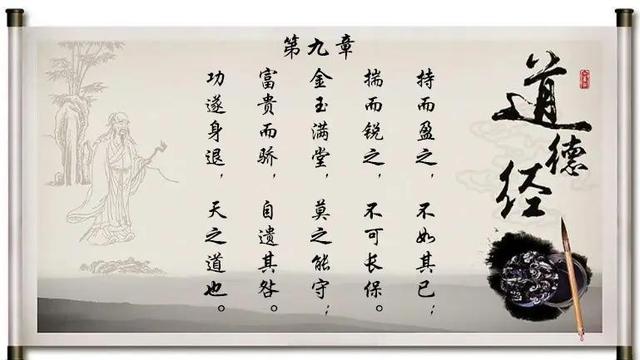 道德经
第九章
持而盈之，不如其已；
揣而锐之，不可长保。
金玉满堂，莫之能守；
富贵而骄，自遗其咎。
功遂身退，天之道也。